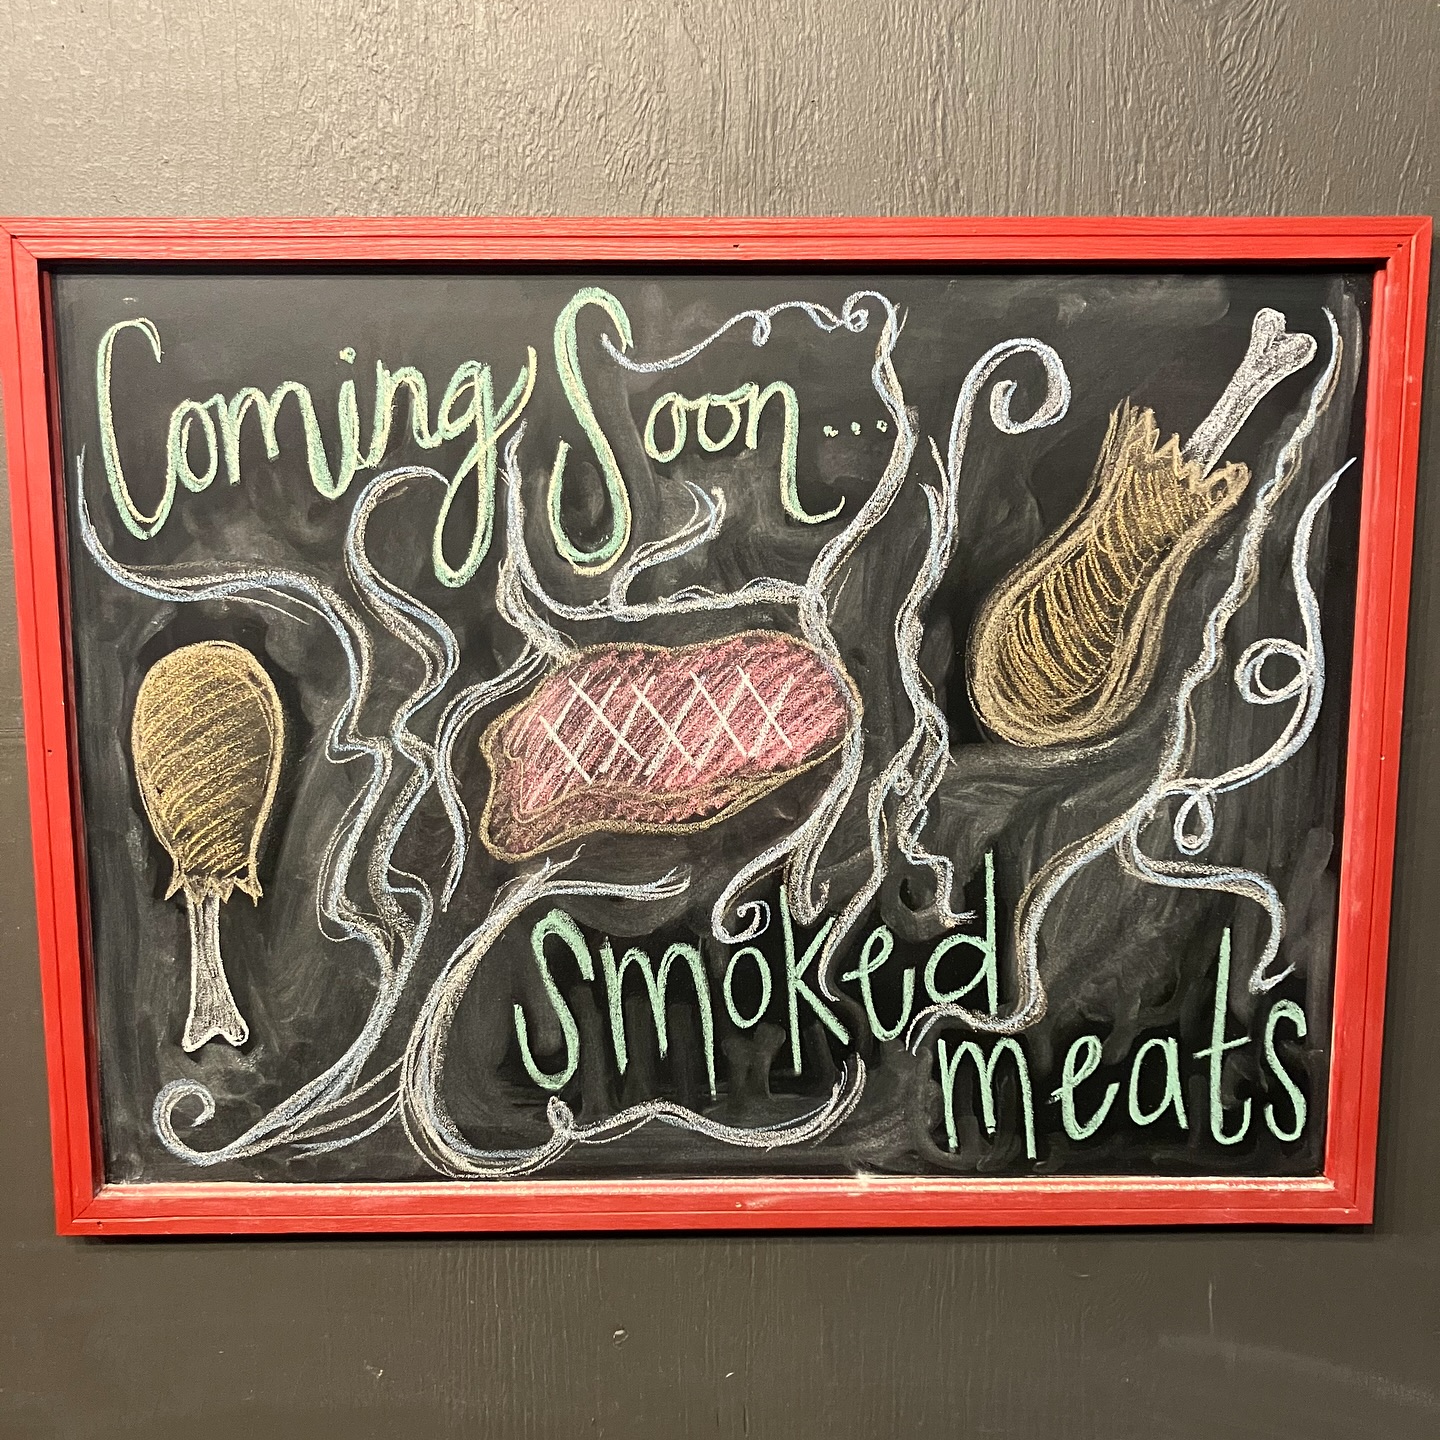 Coming Soon...
smoked
meats